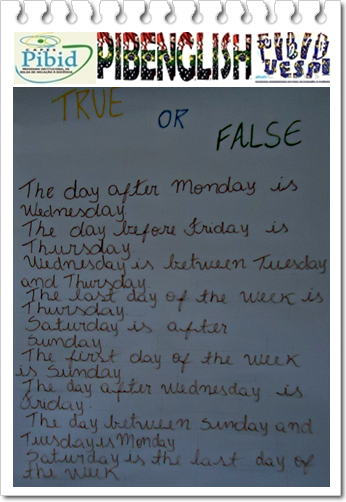 Pibid
PIBENGLISH
PIBID
VESPI
TRUE
OR
FALSE
The day after Monday is
Wednesday
The day before Friday is
Thursday
Wednesday is between Tuesday
and Thursday.
The last day of the week is
Thursday
Saturday is after
Sunday
The first day of the week
is Sunday
The day after Wednesday is
Friday.
The day between Sunday and
Tuesday is Monday
Saturday is the last day of
the week